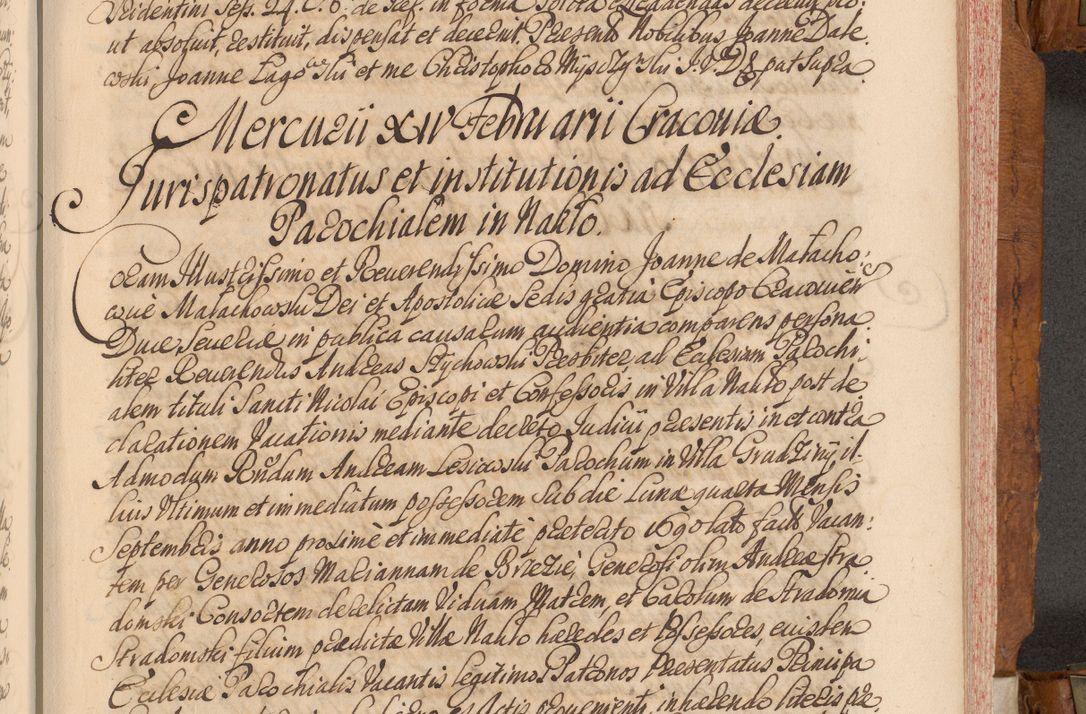 ut absoluit, restituit, dispensat et decernit. Praesente Nobilibus Joanne Dale
Joanne et me Christophoro J. V. D. ut supra.
Mercurii XIV Februarii Cracoviæ.
Jurispatronatus et institutionis ad Ecclesiam
Parochialem in Nakło.
Coram Illustrissimo et Reverendissimo Domino Joanne de Małacho,
wice Małachowski Dei et Apostolicæ Sedis gratia Episcopo Cracovien
Duce Severiæ in publica causarum audientia comparens persona
liter Reverendus Andreas Stychowski Presbiter, ad Ecclesiam Parochi
alem tituli Sancti Nicolai Episcopi et Confessoris in Villa Nakło post de
clarationem Vacationis mediante decreto Judicii præsentis in et contra
Admodum Rndum Andream Parochum in Villa il
lius Ultimum et immediatum possessorem sub die Lunæ quarta Mensis
Septembris anno proximè et immediatè præterito 1690 lato fact Vacan:
tem per Generosos Mariannam de Brzezie, Generosi olim Andreæ Stra
domski Consortem derelictam Viduam Matrem, et Carolum de Stradomia
Stradomski filium prædictæ Villæ Nakło hæredes et Possessores, eiusdem
Ecclesiæ Parochialis Vacantis legitimos Patronos Præsentatus Principa